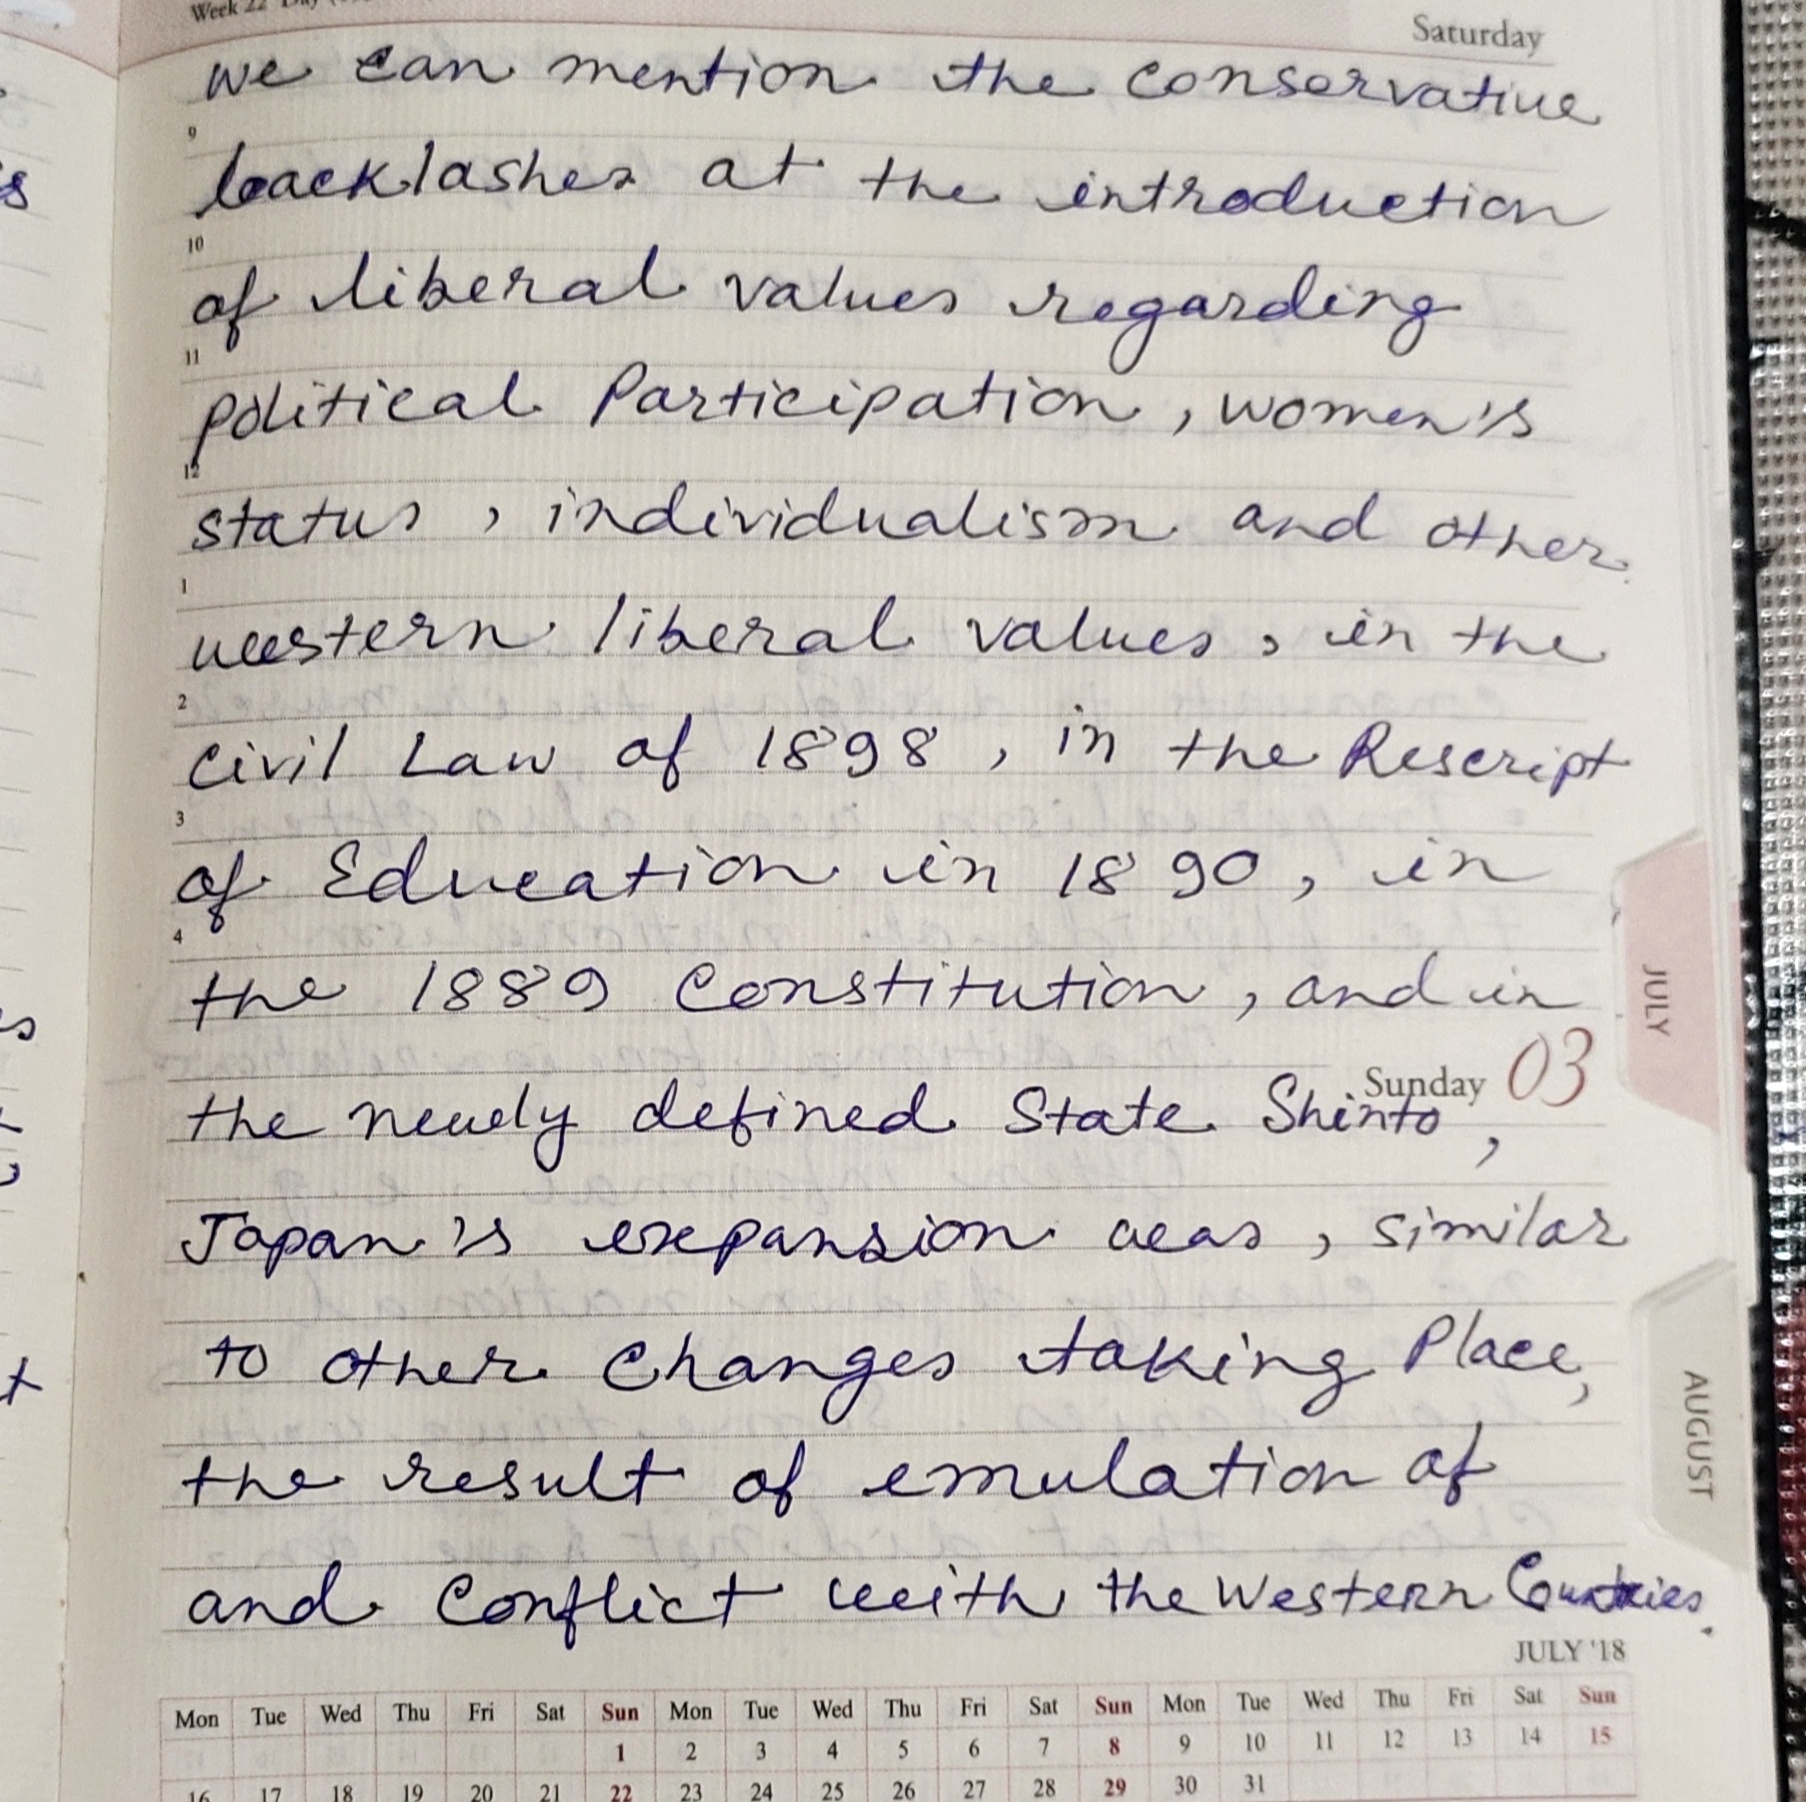 Week 22 Day
Saturday
we can mention the conservative
9
backlashes at the introduction
10
of liberal values regarding
11
political Participation, women's
12
status, individualism and other
1
western liberal values, in the
2
Civil Law of 1898, in the Rescript
3
of Education in 1890, in
4
the 1889 Constitution, and in
Sunday 03
the newly defined State Shinto,
Japan's expansion was, similar
to other Changes taking Place,
the result of emulation of
and Conflict with the Western Countries.
JULY
AUGUST
JULY '18
Mon Tue Wed Thu Fri Sat Sun Mon Tue Wed Thu Fri Sat Sun Mon Tue Wed Thu Fri Sat Sun
1 2 3 4 5 6 7 8 9 10 11 12 13 14 15
16 17 18 19 20 21 22 23 24 25 26 27 28 29 30 31